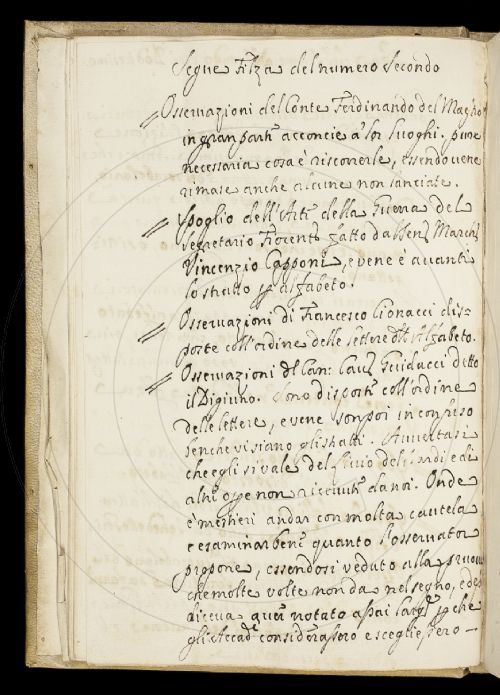 Segue Filza del numero secondo
Osservazioni del Conte Ferdinando del Maestro
in gran parte acconcie a' lor luoghi. pure
necessaria cosa è riscorrerle, essendovene
rimase anche alcune non lanciate.
Spoglio dell'Arte della Guerra del
Segretario Fiorent.o fatto dal Sen.r March.
Vincenzio Capponi, e vene è avanti
lo stratto p alfabeto.
Osservazioni di Francesco Cionacci dis=
poste coll'ordine delle lettere dell'Alfabeto.
Osservazioni del Can: Cav. Guiducci detto
il Digiuno. Sono disposte coll'ordine
delle lettere, e vene son poi in confuso
benche vi siano gli stratti. Avvertasi
che egli si vale del livio del e di
altri ope non ricevute da noi. Onde
è mestieri andar con molta cautela
e esaminar bene quanto l'osservator
propone, essendosi veduto alla pruova
che molte volte non da nel segno, e
diceva aver notato assai larg.te p che
gli Accad.ci considerassero e scegliessero —